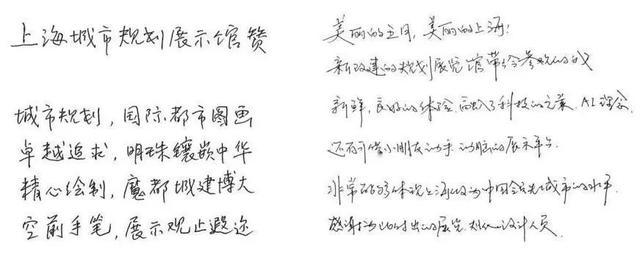 上海城市规划展示馆赞
城市规划，国际都市图画
卓越追求，明珠镶嵌中华
精心绘制，魔都城建博大
空前手笔，展示观止遐迩
美丽的五月，美丽的上海！
新改建的规划展览馆带给参观的我
新鲜，良好的体验，融入了科技的元素，AI理念，
还有可供小朋友动手、动脑的展示平台
非常的能体现上海作为中国会员城市的水平
感谢为此付出的展览 设计人员